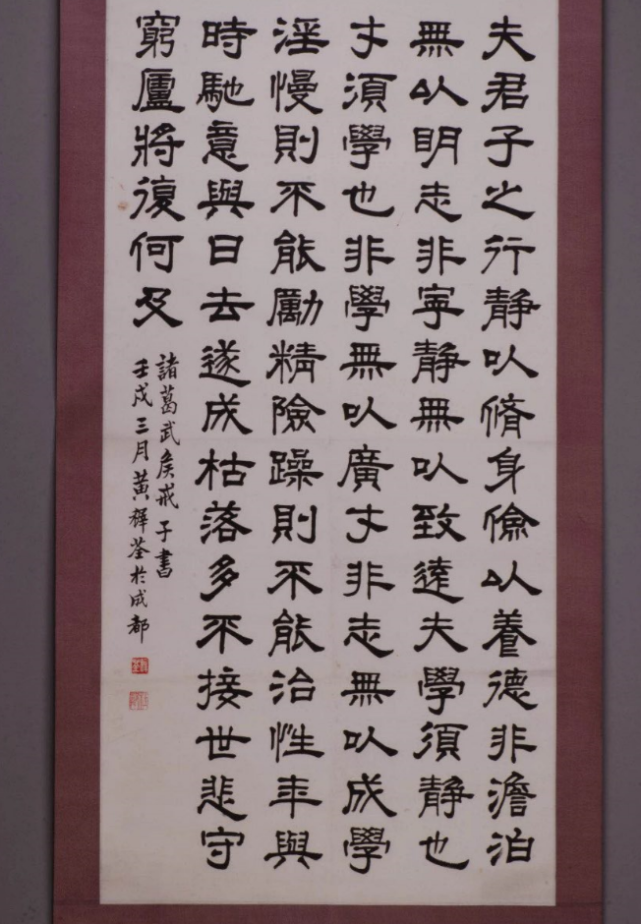 夫君子之行静以脩身儉以養德非澹泊
無以明志非寧静無以致遠夫學須静也
才須學也非學無以廣才非志無以成學
淫慢則不能勵精險躁則不能治性年與
時馳意與日去遂成枯落多不接世悲守
窮廬將復何及
諸葛武侯戒子書
壬戌三月黃穉荃於成都